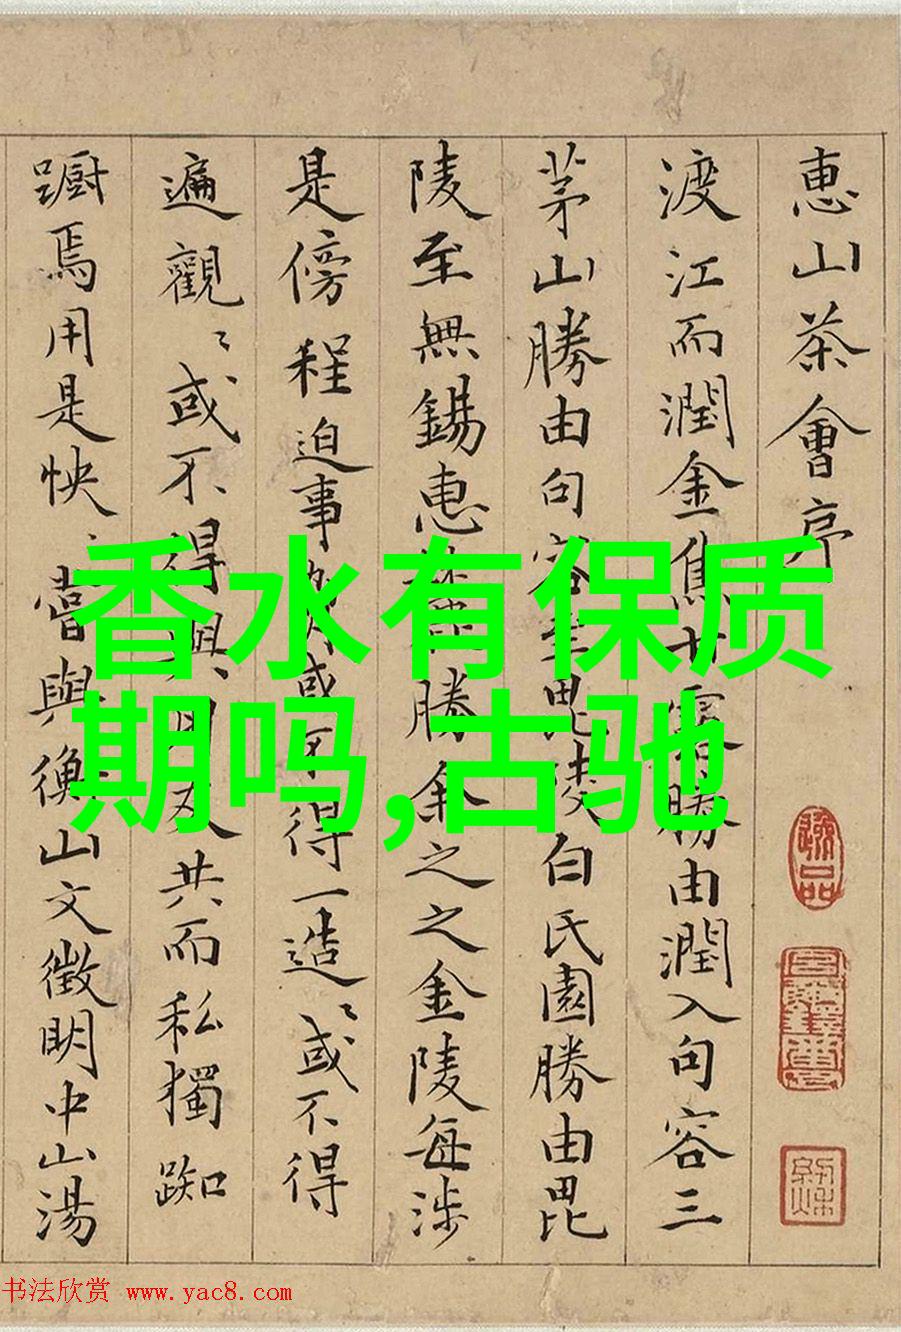 惠山茶會序
渡江而潤金焦甘露勝由潤入句容三
茅山勝由句容至毘陵白氏園勝由毘
陵至無錫惠山勝余之之金陵每涉
是傍程迫事或不得一造〻或不得
遍觀〻或不得與同友共而私獨踟
蹰焉用是怏〻嘗與衡山文徵明中山湯
香水有保质
期吗,古驰
书法欣赏 www.yac8.com